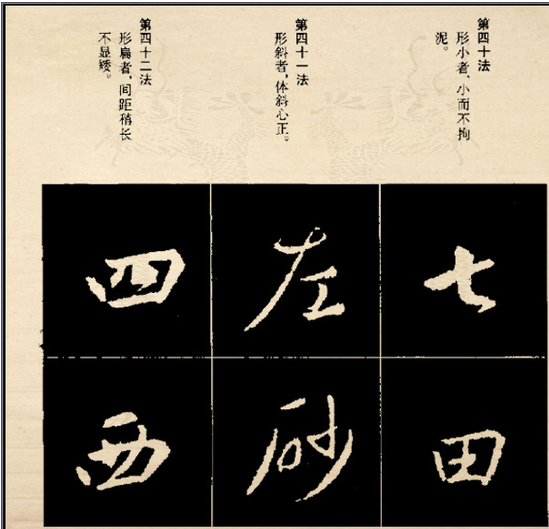 第四十法
形小者，小而不拘
泥。
第四十一法
形斜者，体斜心正。
第四十二法
形扁者，间距稍长
不显矮。
七
田
左
砂
四
西